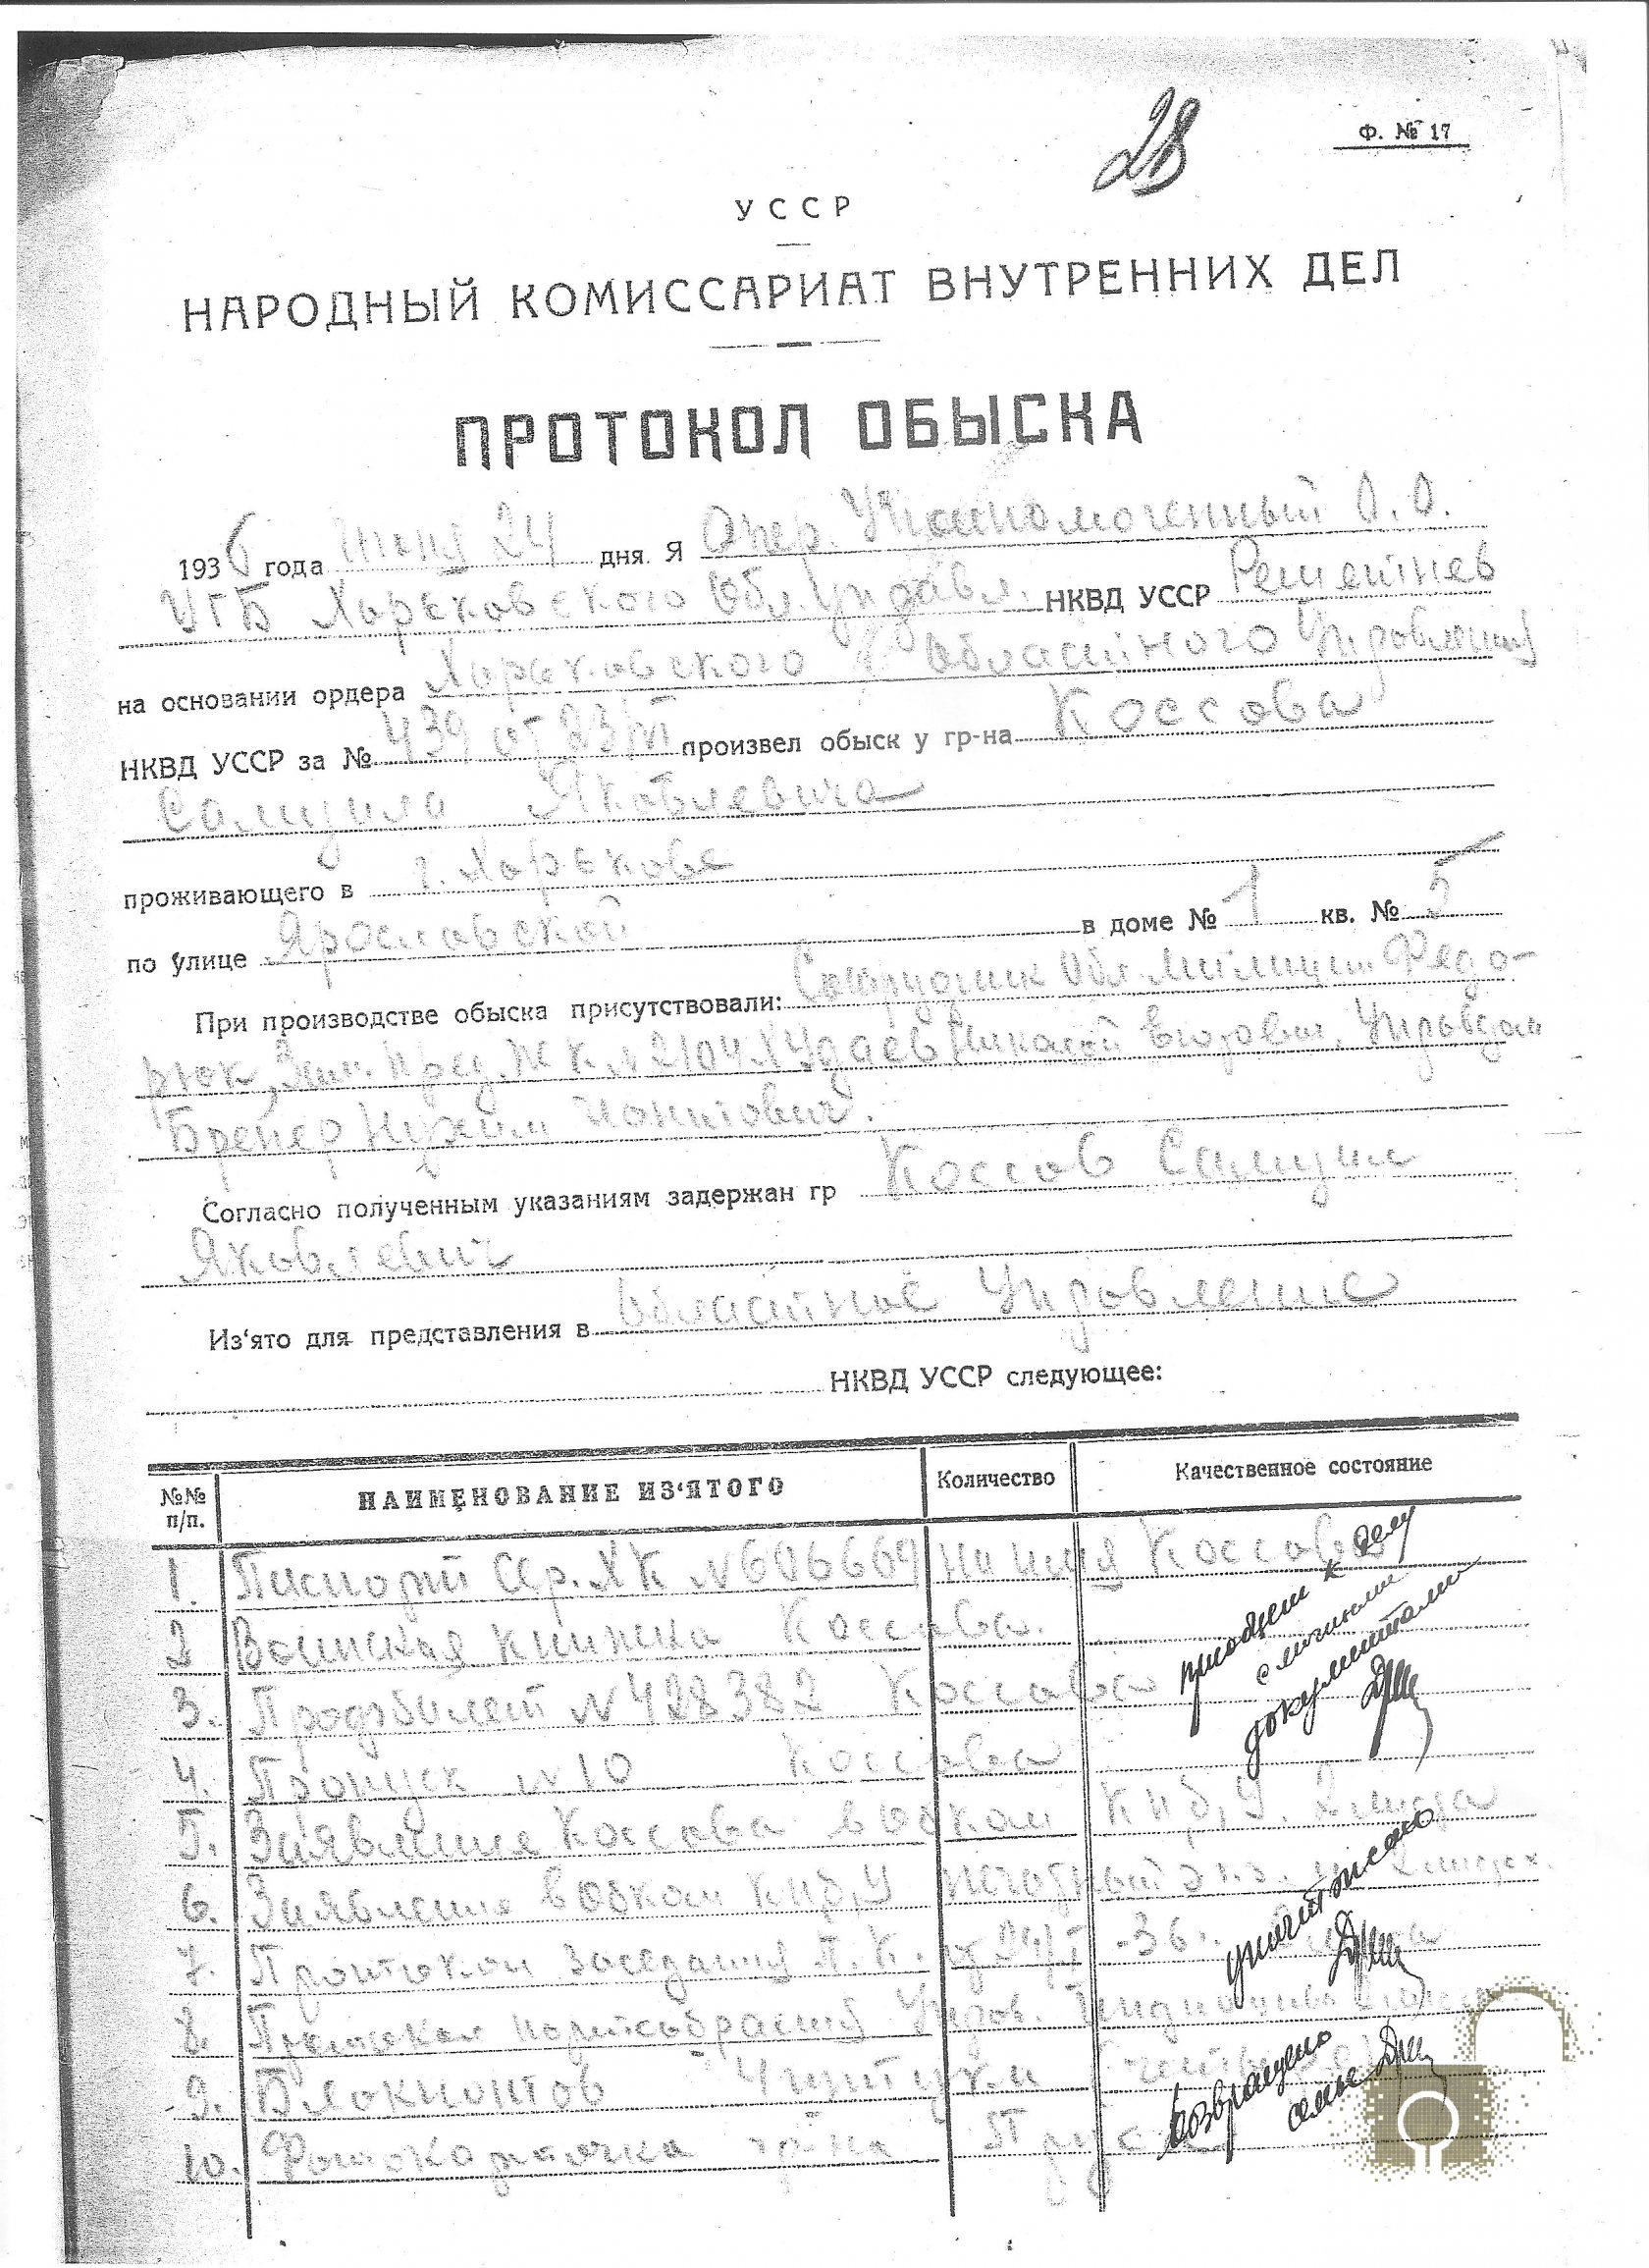 28
Ф. № 17
УССР
НАРОДНЫЙ КОМИССАРИАТ ВНУТРЕННИХ ДЕЛ
ПРОТОКОЛ ОБЫСКА
1936 года Июня 24 дня. Я Опер. Уполномоченный О.О.
УГБ Харьковского Обл. Управл. НКВД УССР Решетнев
на основании ордера Харьковского Областного Управления
НКВД УССР за № 439 от 23/VI произвел обыск у гр-на Коссова
Самуила Яковлевича
проживающего в г. Харькове
по улице Ярославской в доме № 1 кв. № 5
При производстве обыска присутствовали: Сотрудник Обл. Милиции Федо-
рюк, Зам. Пред. ЖК № 2104 Худаев Николай Управдом
Бренер Нухим
Согласно полученным указаниям задержан гр Коссов Самуил
Яковлевич
Из'ято для представления в Областное Управление
НКВД УССР следующее:
№№ п/п. НАИМЕНОВАНИЕ ИЗ'ЯТОГО Количество Качественное состояние
1. Паспорт Сер. ХК № 606669 на имя Коссова
2 Воинская книжка Коссова.
3. Продбилет № 428382 Коссова
4. Пропуск № 10 Коссова
приобщен к делу
с личными
документами
5. Заявление Коссова в обком КП(б)У. 2 листа
6. Заявление в обком КП(б)У
7. Протокол заседания П.К. от 24/I-36
8. Протокол партсобрания Управ.
уничтожено
9. Блокнотов 4 штуки
10. Фотокарточка гр-на
возвращено
семье